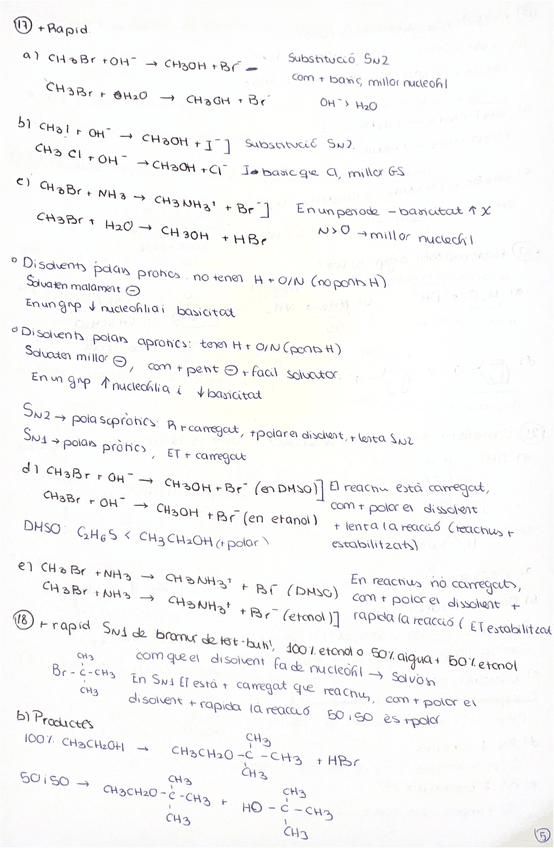 17 + Rapid
a) CH3Br + OH⁻ → CH3OH + Br⁻ Substitució SN2
com + bàsic, millor nucleòfil
CH3Br + H2O → CH3OH + Br⁻ OH⁻ > H2O
b) CH3I + OH⁻ → CH3OH + I⁻ ] Substitució SN2.
CH3Cl + OH⁻ → CH3OH + Cl⁻ I⊖ bàsic que Cl, millor GS
c) CH3Br + NH3 → CH3NH3⁺ + Br⁻ ] En un període - basicitat ↑ X
CH3Br + H2O → CH3OH + HBr N > O → millor nucleòfil
o Disolvents polars pròtics: no tenen H + O/N (no ponts H)
Solvaten malament ⊖
En un grup ↓ nucleofília i basicitat
o Disolvents polars apròtics: tenen H + O/N (ponts H)
Solvaten millor ⊖, com + petit ⊖ + fàcil solvatar.
En un grup ↑ nucleofília i ↓ basicitat
SN2 → polars apròtics R + carregat, + polar el disolvent, + lenta SN2
SN1 → polars pròtics, ET + carregat
d) CH3Br + OH⁻ → CH3OH + Br⁻ (en DMSO) ] El reactiu està carregat,
CH3Br + OH⁻ → CH3OH + Br⁻ (en etanol) com + polar el dissolvent
+ lenta la reacció (reactius +
DMSO: C2H6S < CH3CH2OH (+ polar) estabilitzats)
e) CH3Br + NH3 → CH3NH3⁺ + Br⁻ (DMSO) En reactius no carregats,
CH3Br + NH3 → CH3NH3⁺ + Br⁻ (etanol) ] com + polar el dissolvent +
ràpida la reacció (ET estabilitzat
18 + ràpid SN1 de bromur de tert-butil, 100% etanol o 50% aigua + 50% etanol
CH3
Br - C - CH3
CH3
com que el disolvent fa de nucleòfil → Solvòlisi
En SN1 ET està + carregat que reactius, com + polar el
disolvent + ràpida la reacció 50 i 50 és + polar
b) Productes
CH3
100% CH3CH2OH → CH3CH2O - C - CH3 + HBr
CH3
CH3 CH3
50 i 50 → CH3CH2O - C - CH3 + HO - C - CH3
CH3 CH3
5